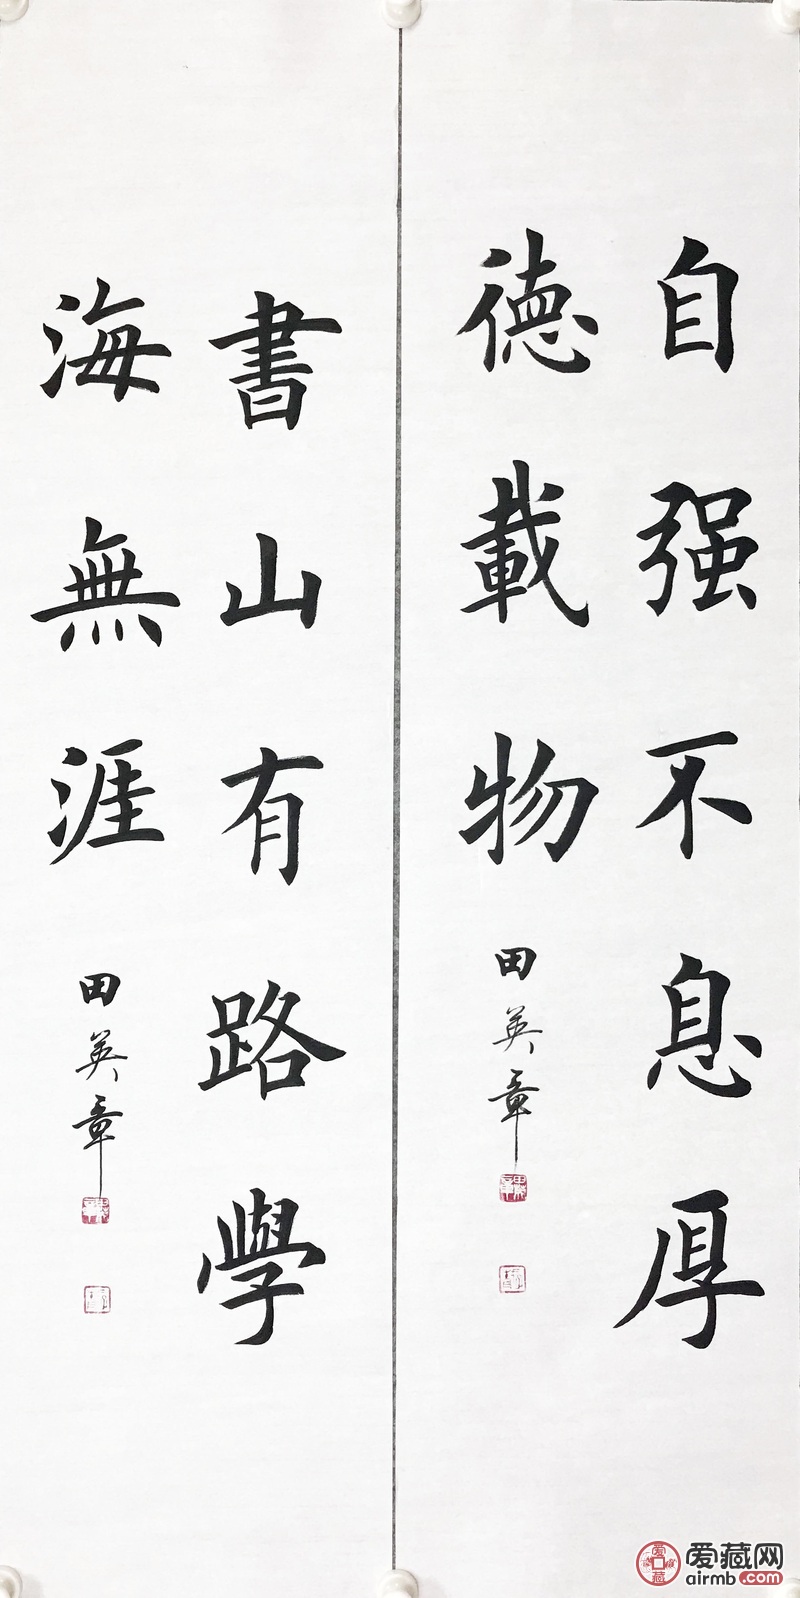 自强不息厚
德載物
田英章
書山有路學
海無涯
田英章
爱藏网
airmb.com